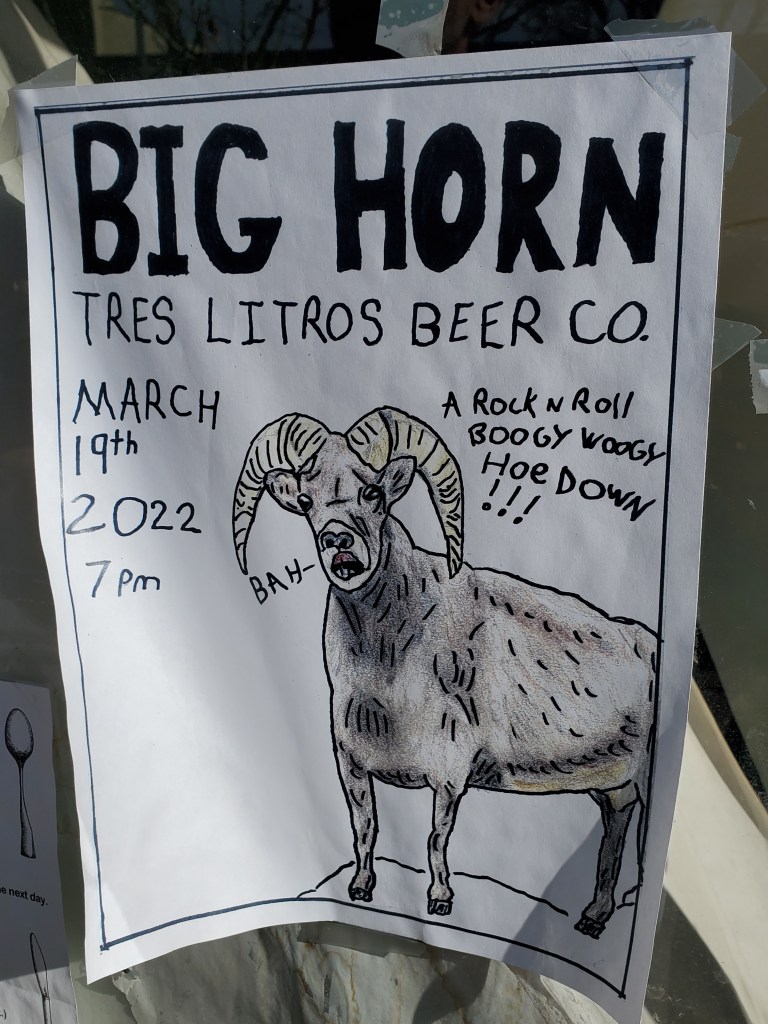 BIG HORN
TRES LITROS BEER CO.
MARCH
19th
2022
7pm
A Rock N Roll
BOOGY WOOGY
Hoe DOWN
!!!
BAH-
e next day.
.)